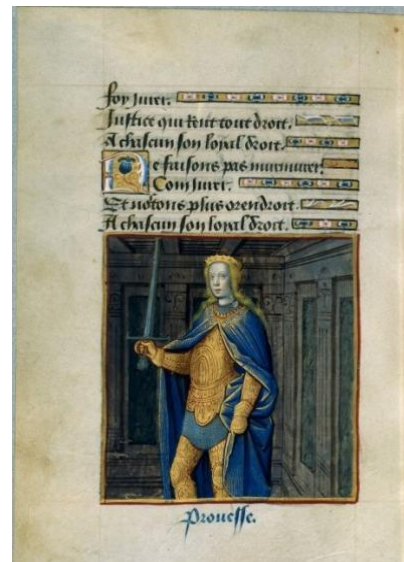 foy jurer.
Justice qui tent tout droit.
A chascun son loyal droit.
Ne faisons pas murmurer.
Com jurer.
Et notons plus orendroit.
A chascun son loyal droit.
Prouesse.